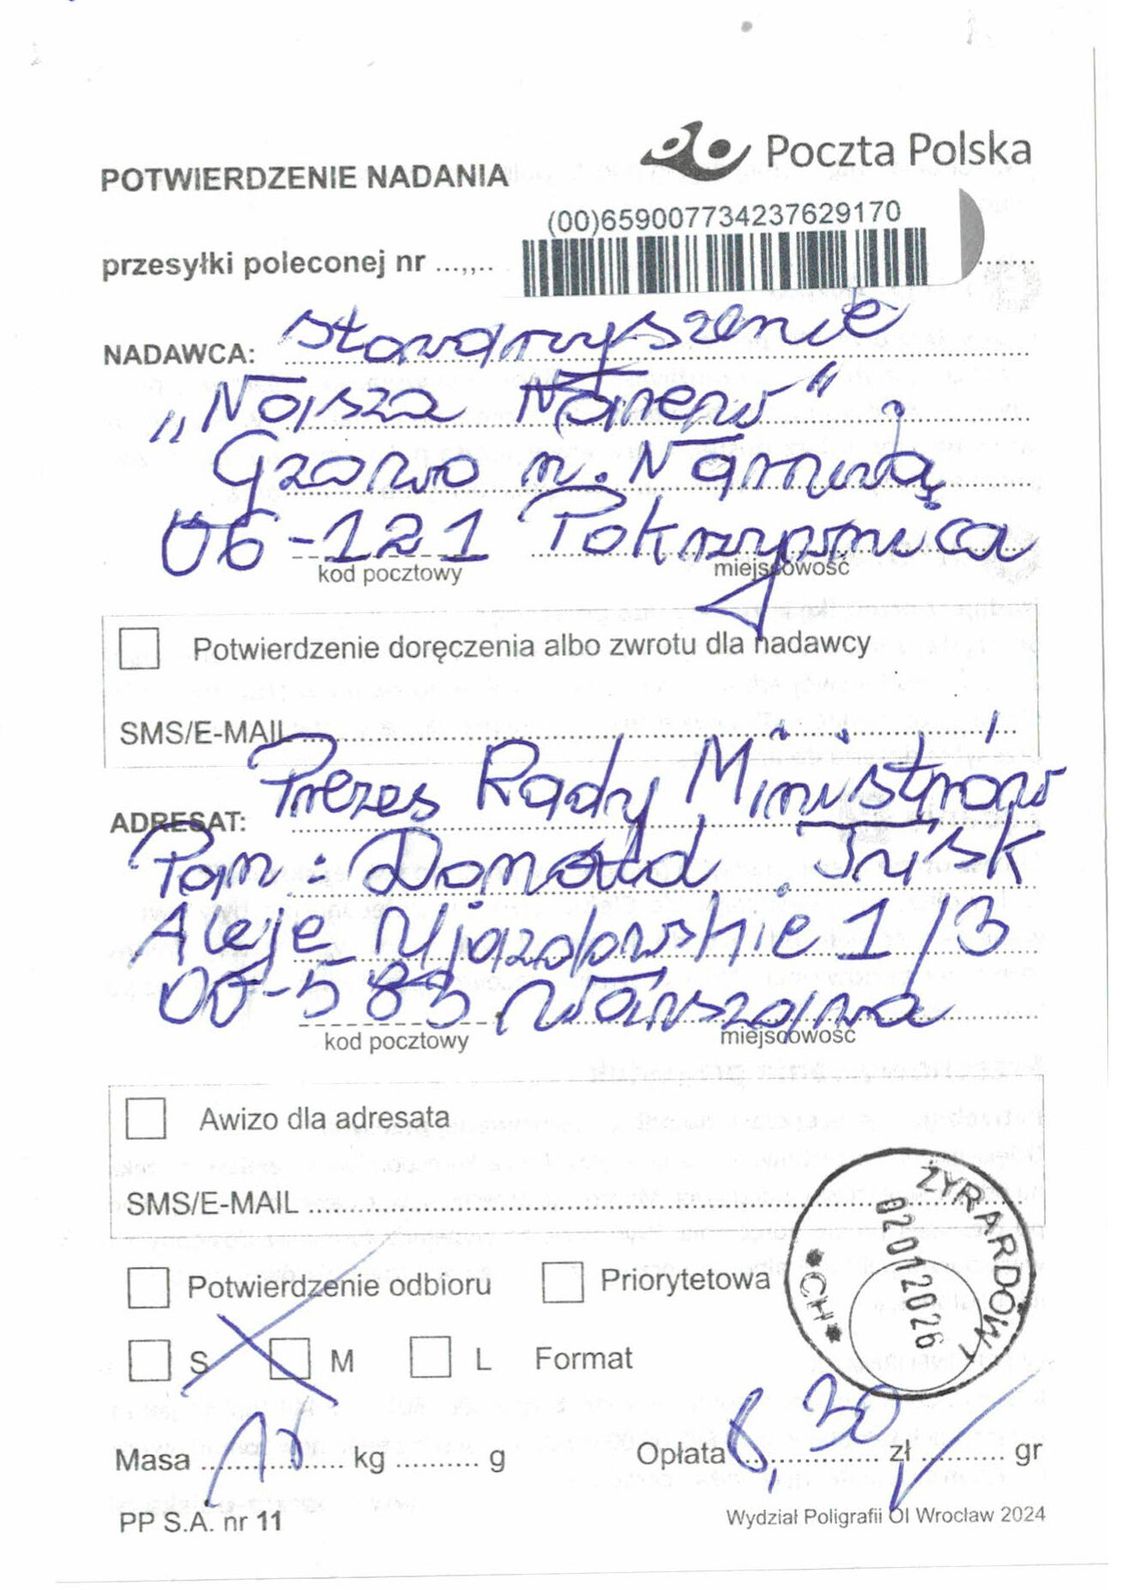 Poczta Polska
POTWIERDZENIE NADANIA
(00)659007734237629170
przesyłki poleconej nr
NADAWCA: Stowarzyszenie
„Nasza Narew"
Gzowo n. Narwią
06-121 Pokrzywnica
kod pocztowy miejscowość
Potwierdzenie doręczenia albo zwrotu dla nadawcy
SMS/E-MAIL
ADRESAT: Prezes Rady Ministrów
Pan: Donald Tusk
Aleje Ujazdowskie 1/3
00-583 Warszawa
kod pocztowy miejscowość
Awizo dla adresata
SMS/E-MAIL
ŻYRARDÓW 1
02012026
*CH*
Potwierdzenie odbioru Priorytetowa
S M L Format
Masa kg g Opłata 8,30 zł gr
PP S.A. nr 11 Wydział Poligrafii OI Wrocław 2024